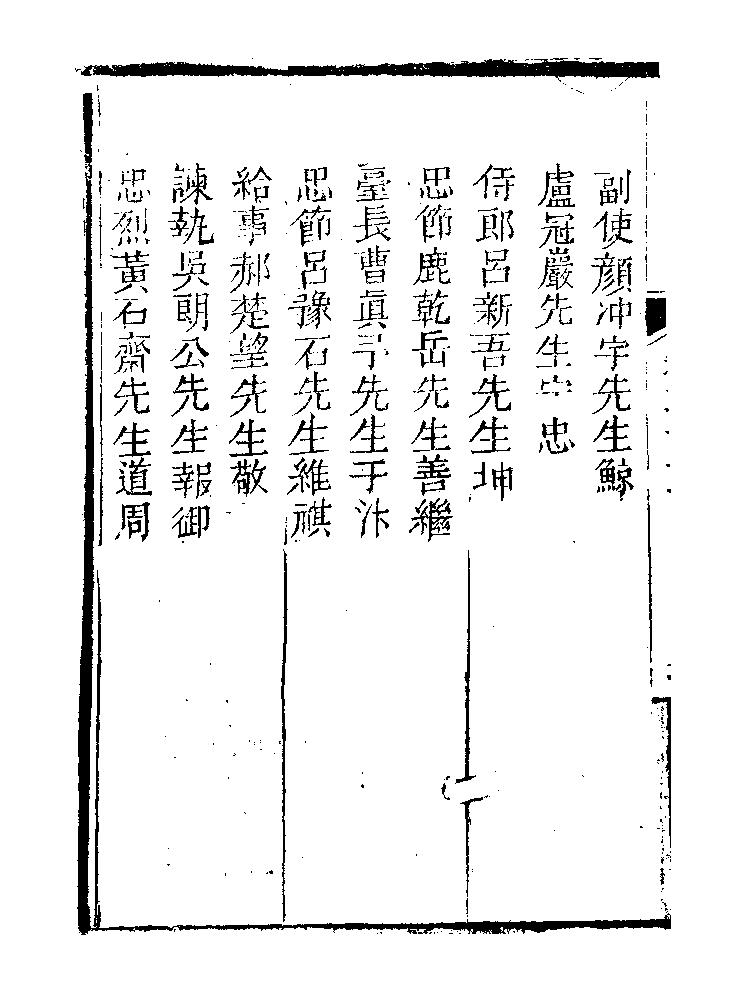 副使顏冲宇先生鯨
盧冠巖先生宁忠
侍郎呂新吾先生坤
忠節鹿乾岳先生善繼
臺長曹眞予先生于汴
忠節呂豫石先生維祺
給事郝楚望先生敬
諫執吳朗公先生報御
忠烈黃石齋先生道周